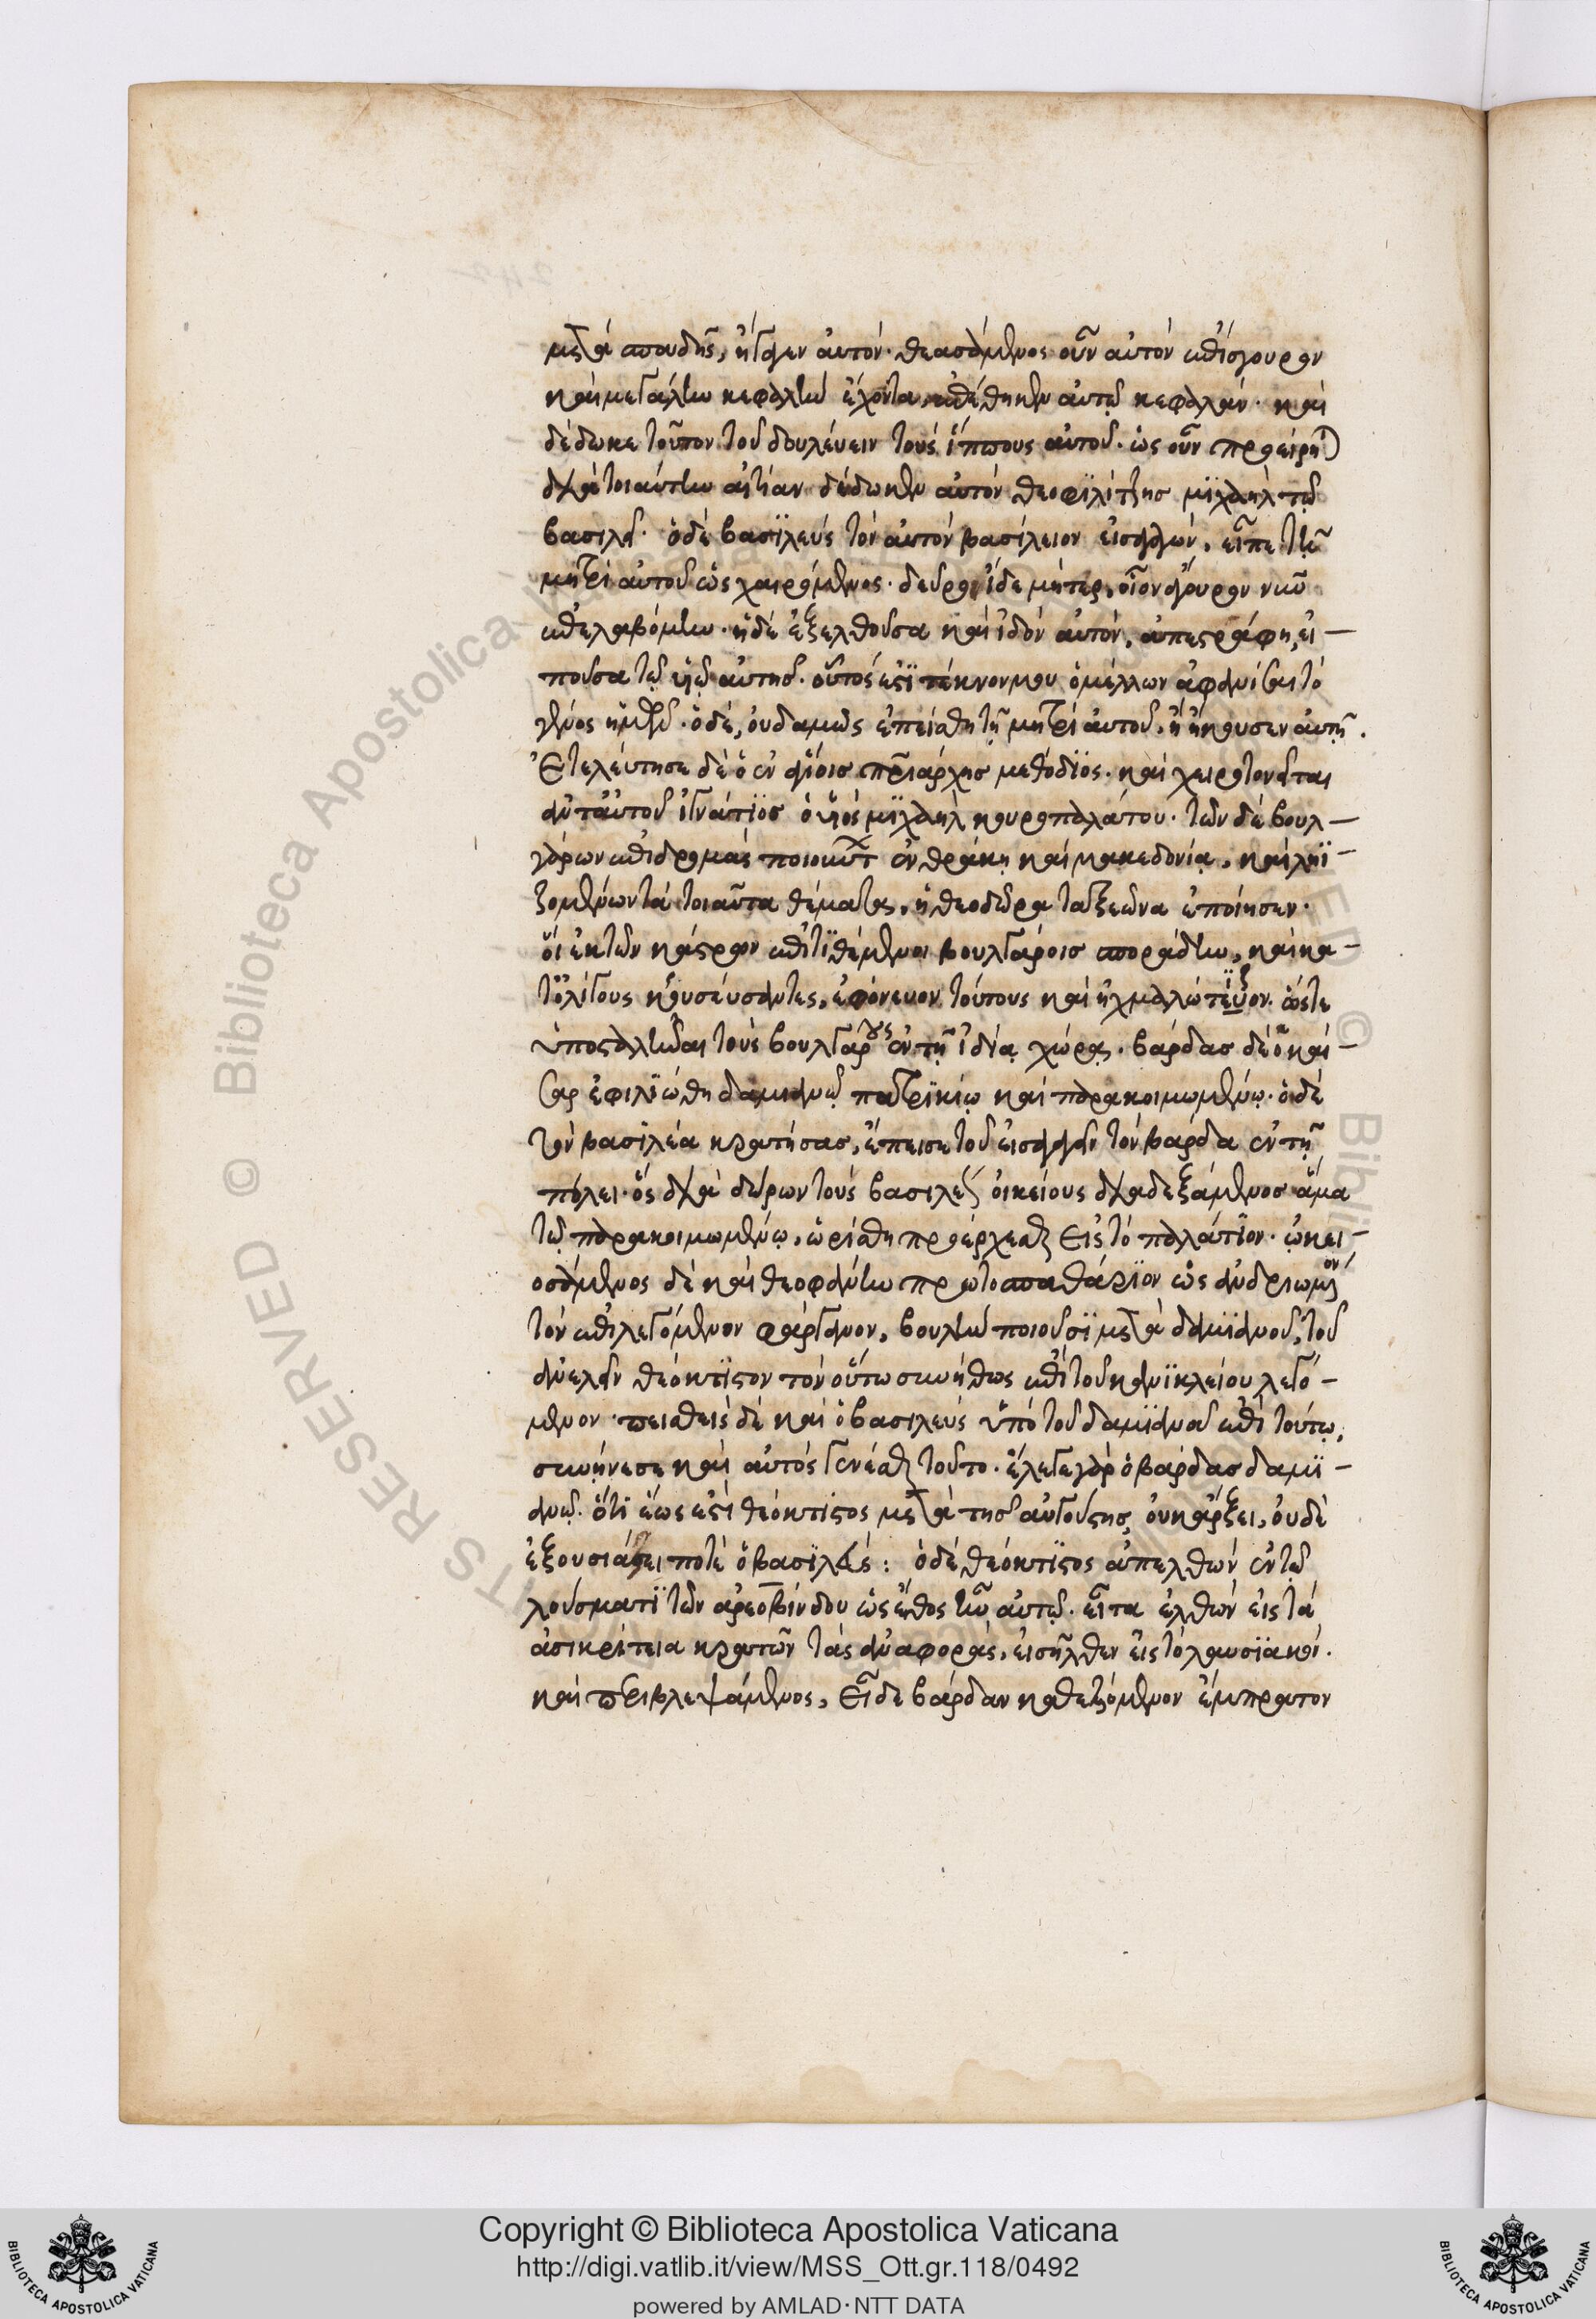 μετὰ σπουδῆς, ἤγαγεν αὐτόν. θεασάμενος οὖν αὐτὸν ἐπίσγουρον
καὶ μεγάλην κεφαλὴν ἔχοντα, ἐπέθηκεν αὐτῷ κεφαλάν. καὶ
δέδωκε τοῦτον τοῦ δουλεύειν τοὺς ἵππους αὐτοῦ. ὡς οὖν προείρηται
διὰ τοιαύτην αἰτίαν δέδωκεν αὐτὸν θεοφιλίτζης μϊχαὴλ τῷ
βασιλεῖ. ὁ δὲ βασϊλεὺς τὸν αὐτὸν βασίλειον εἰσαγαγὼν, εἶπε τῇ
μητρὶ αὐτοῦ ὡς χαιρόμενος. δεῦρο ἴδε μῆτερ, οἷον ἄγουρον νῦν
ἐπελαβόμην. ἡ δὲ ἐξελθοῦσα καὶ ἰδὸν αὐτὸν, ἀπεστράφη, εἰ-
ποῦσα τῷ υἱῷ αὐτῆς. οὗτός ἐστϊ τέκνον μου ὁ μέλλων ἀφανίσαι τὸ
γένος ἡμῶν. ὁ δὲ, οὐδαμῶς ἐπείσθη τῇ μητρὶ αὐτοῦ, ἢ ἤκουσεν αὐτῆ.
Ἐτελεύτησε δὲ ὁ ἐν ἁγίοις πατριάρχης μεθόδϊος. καὶ χειροτονεῖται
ἀντ' αὐτοῦ ἰγνάτϊος ὁ υἱὸς μϊχαὴλ κουροπαλάτου. τῶν δὲ βουλ-
γάρων ἐπιδρομὰς ποιούντων ἐν θράκη καὶ μακεδονίᾳ, καὶ ληϊ-
ζομένων τὰ τοιαῦτα θέματα, ἡ θεοδώρα ταξεῶνα ἐποίησεν.
οἳ ἐκ τῶν κάστρων ἐπιτϊθέμενοι βουλγάροις σποράδην, καὶ κα-
τ' ὀλίγους κουρσεύσαντες, ἐφόνευον τούτους καὶ ἠχμαλώτευον. ὥστε
ὑποσταλῆναι τοὺς βουλγάρους ἐν τῇ ἰδίᾳ χώρᾳ. βάρδας δὲ ὁ καῖ-
σαρ ἐφιλϊώθη δαμιανῷ πατρϊκίῳ καὶ παρακοιμωμένῳ. ὁ δὲ
τὸν βασιλέα κρατήσας, ἔπεισε τοῦ εἰσαγαγεῖν τὸν βάρδα ἐν τῇ
πόλει. ὃς διὰ δώρων τοὺς βασιλεῖ οἰκείους διαδεξάμενος ἅμα
τῷ παρακοιμωμένῳ, ὡρίσθη προέρχεσθαι εἰς τὸ παλάτϊον. ᾠκει-
οσάμενος δὲ καὶ θεοφάνην πρωτοσπαθάρϊον ὡς ἀνδριωμένον
τὸν ἐπιλεγόμενον φάργανον, βουλὴν ποιοῦσϊ μετὰ δαμϊανοῦ, τοῦ
ἀνελεῖν θεόκτϊστον τὸν οὕτω συνήθως ἐπὶ τοῦ κανϊκλείου λεγό-
μενον. πεισθεὶς δὲ καὶ ὁ βασιλεὺς ὑπὸ τοῦ δαμϊανοῦ ἐπὶ τούτῳ,
συνῄνεσε καὶ αὐτὸς γενέσθαι τοῦτο. ἔλεγε γὰρ ὁ βάρδας δαμϊ-
ανῷ. ὅτϊ ἕως ἐστὶ θεόκτιστος μετὰ τῆς αὐγούστης, οὐκ ἄρξει, οὐδὲ
ἐξουσιάσει ποτὲ ὁ βασϊλεύς: ὁ δὲ θεόκτϊστος ἀπελθὼν ἐν τῷ
λούσματϊ τῶν ἀρεοβίνδου ὡς ἔθος ἦν αὐτῷ. εἶτα ἐλθὼν εἰς τὰ
ἀσικρίτεια κρατῶν τὰς ἀναφορὰς, εἰσῆλθεν εἰς τὸ λαυσϊακόν.
καὶ περιβλεψάμενος, εἶδε βάρδαν καθεζόμενον ἔμπροστον
Copyright © Biblioteca Apostolica Vaticana
http://digi.vatlib.it/view/MSS_Ott.gr.118/0492
powered by AMLAD·NTT DATA